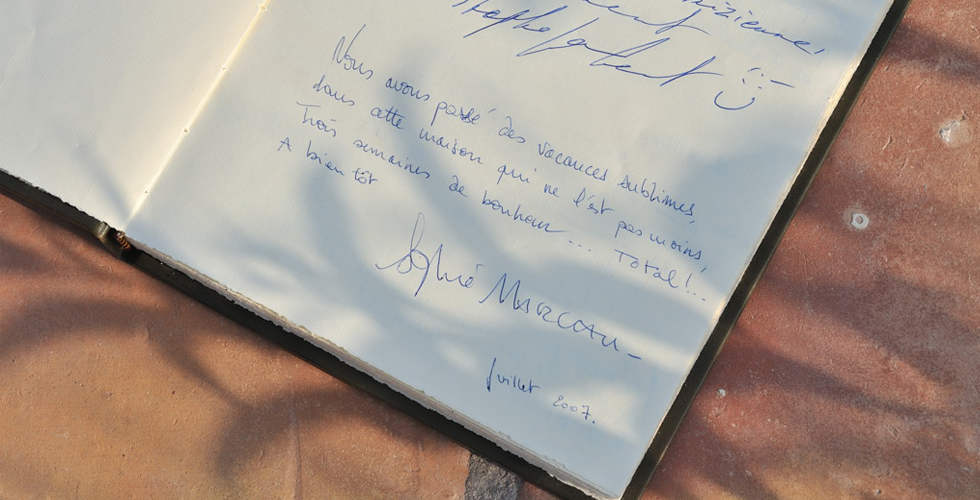 Nous avons passé des vacances sublimes,
dans cette maison qui ne l'est pas moins,
Trois semaines de bonheur ... Total!..
A bientôt
Sophie Marceau
Juillet 2007.